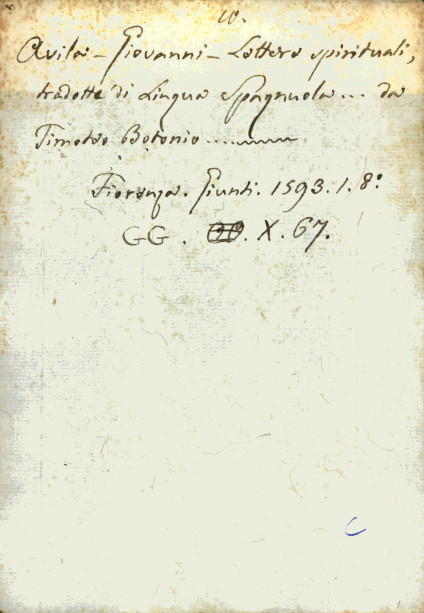 10.
Avila - Giovanni - Lettere spirituali,
tradotte di Lingua Spagnuola ... da
Timoteo Botonio
Fiorenza. Giunti. 1593. 1. 8°
GG. X. 67.